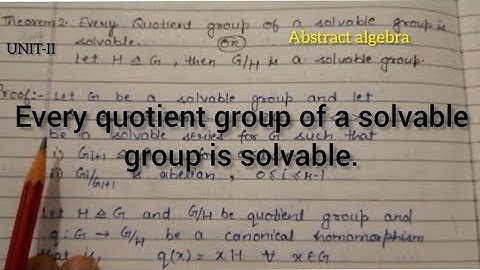 Theorem 2. Every Quotient group of a solvable group is
solvable. (OR)
Abstract algebra
UNIT-II
Let H Δ G, then G/H is a solvable group.
Proof:- Let G be a solvable group and let
Every quotient group of a solvable
be a solvable series for G such that
group is solvable.
i) Gi+1
ii) Gi/Gi+1 is abelian, 0≤i≤r-1
Let H Δ G and G/H be quotient group and
q: G → G/H be a canonical homomorphism
that is, q(x) = xH ∀ x∈G